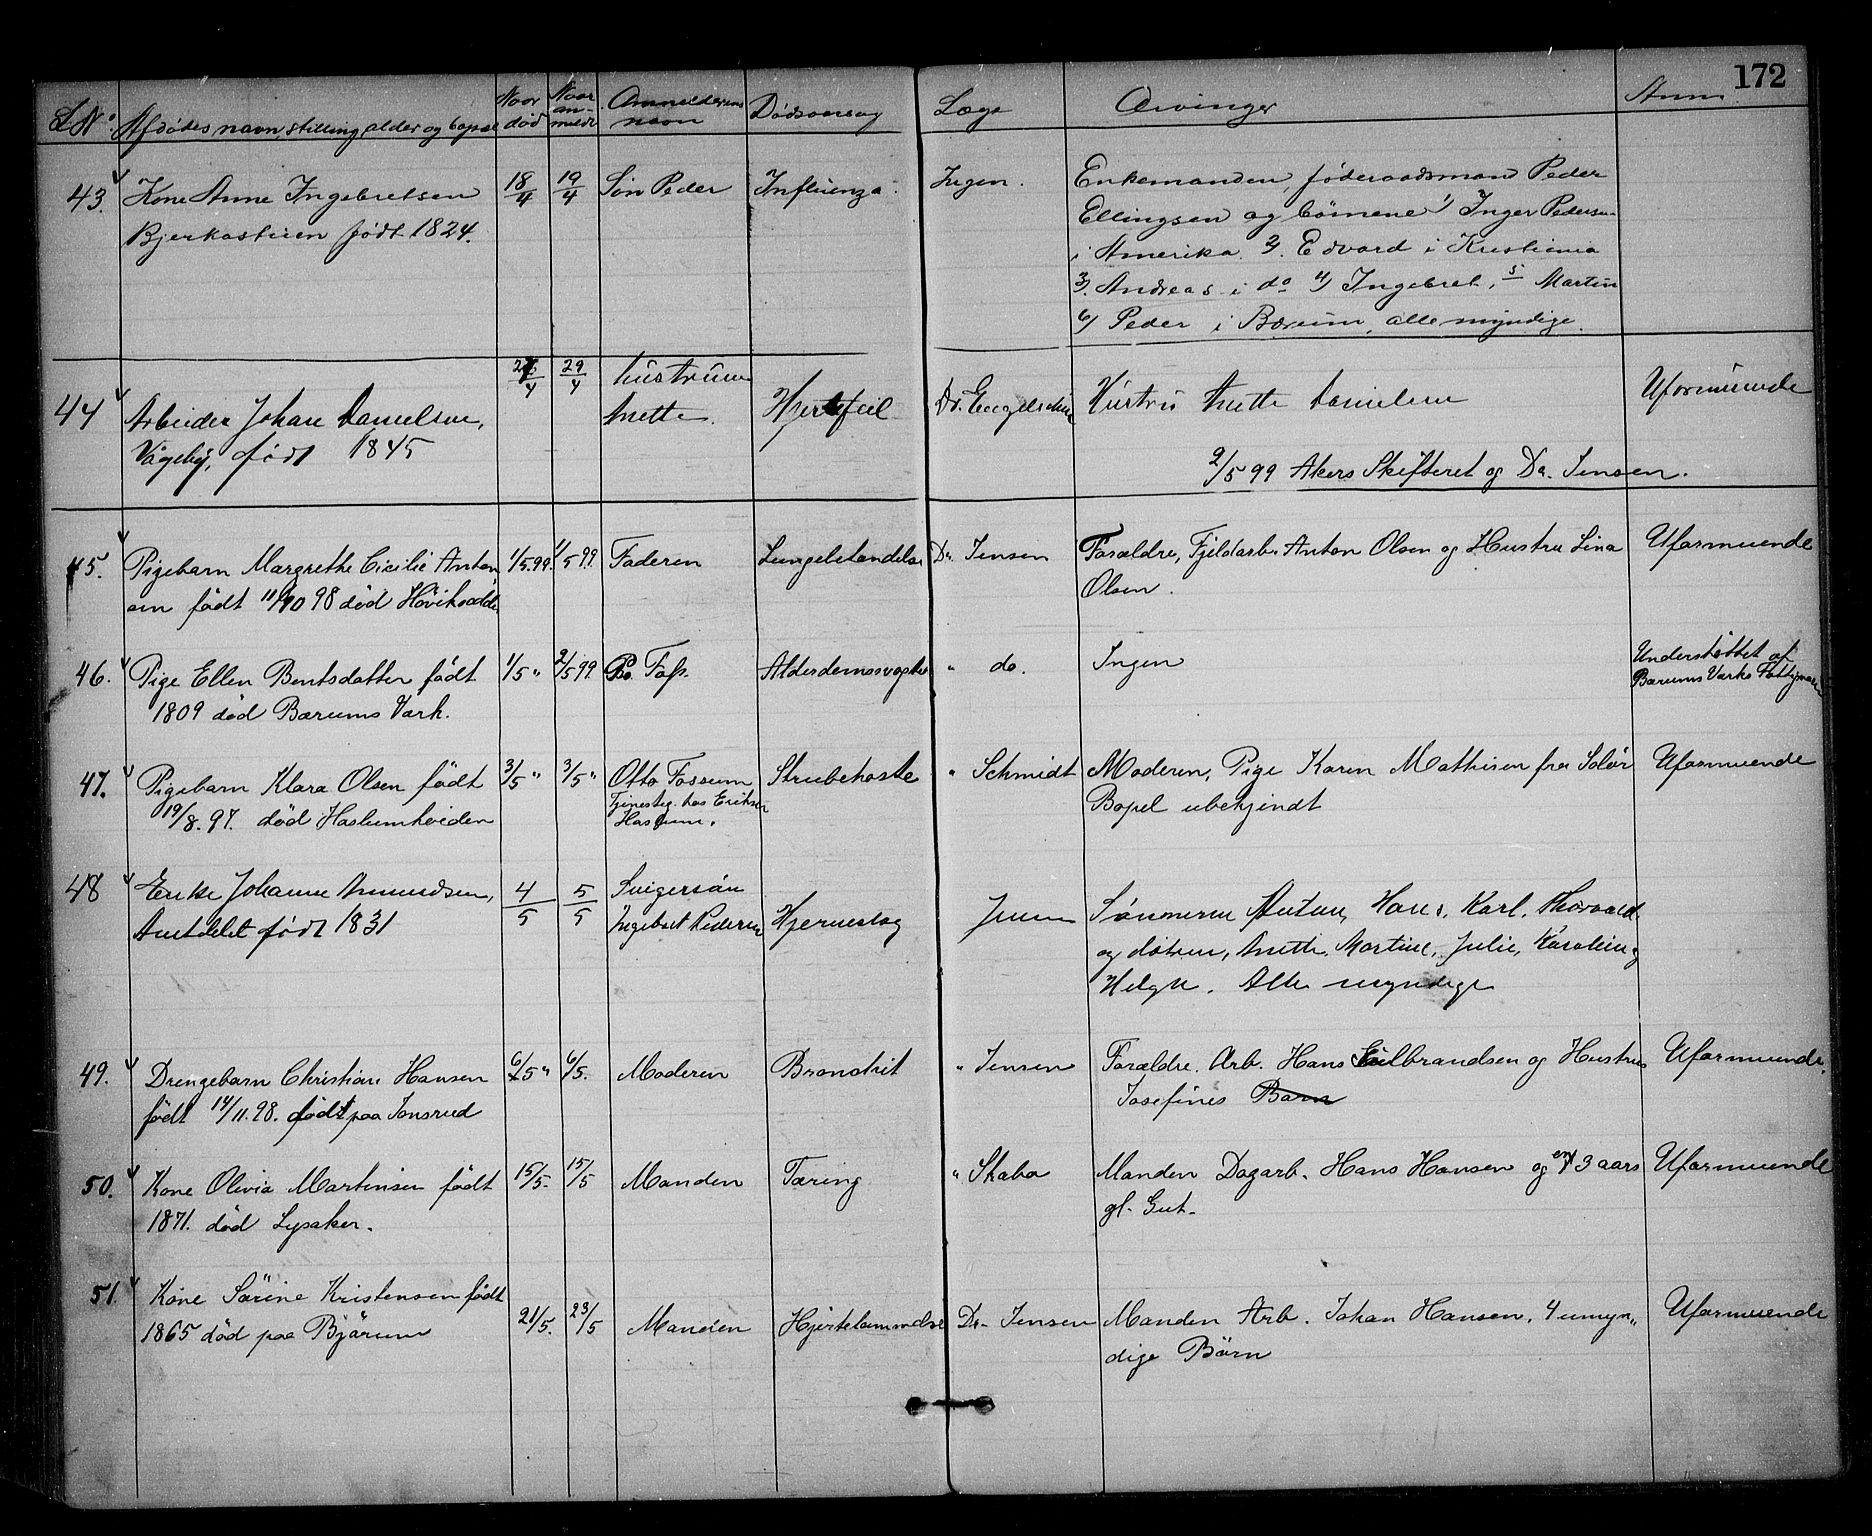 172
LNo. Afdødes navn, stilling, alder og bopæl Naar død Naar anmeldt Anmelderens navn Dødsaarsag Læge Arvinger Anm.
43. Kone Anne Ingebretsen 18/4 19/4 Søn Peder Influenza. Ingen. Enkemanden, føderaadsmand Peder
Bjerkastuen født 1824. Ellingsen og børnene 1) Inger Pedersen
i Amerika. 2). Edvard i Kristiania
3). Andreas i do 4) Ingebret, 5 Martin
6) Peder i Bærum, alle myndige.
44 Arbeider Johan Danielsen, 29/4 hustruen Anette. Hjertefeil Dr. Engelschiøn Hustru Anette Danielsen Uformuende
Vågeby, født 1845
2/5 99 Akers Skifteret og Dr. Jensen.
45. Pigebarn Margrethe Cicilie Anton 1/5.99. 1/5 99. Faderen Lungebetændelse Dr. Jensen Forældre, Fjeldarb. Anton Olsen og Hustru Lina Uformuende
sen født 11/10 98 død Høviksodde Olsen.
46. Pige Ellen Bentsdatter født 1/5 " 2/5 99 Alderdomssvaghed " do. Ingen Understøttet af
1809 død Bærums Værk. Bærums Værks Fattigvæsen
47. Pigebarn Klara Olsen født 3/5 " 3/5 " Otto Fossum Strubehoste " Schmidt Moderen, Pige Karen Mathisen fra Solør Uformuende
19/8. 97. død Haslumheiden Tjenesteg. hos Eriksen Haslum. Bopel ubekjendt
48 Enke Johanne Amundsen, 4/5 5/5 Svigersøn Hjerneslag Jensen Sønnerne Anton, Hans, Karl, Thorvald
født 1831 Ingebret Pedersen og døtrene, Anette, Martine, Julie, Karoline og
Helga. Alle myndige
49. Drengebarn Christian Hansen 6/5 " 6/5. Moderen Brandsit " Jensen Forældre. Arb. Hans Gulbrandsen og Hustru Uformuende.
født 14/11. 98. født paa Jonsrud Josefines Barn
50. Kone Olivia Martinsen født 15/5. 15/5 Manden Tæring " Skabo Manden Dagarb. Hans Hansen og en 3 aars Uformuende
1871. død Lysaker. gl. Gut.
51. Kone Sørine Kristensen født 21/5. 23/5 Manden Hjertelammelse Dr. Jensen Manden Arb. Johan Hansen, 4 umyn„ Uformuende
1865 død paa Bjørum dige Børn